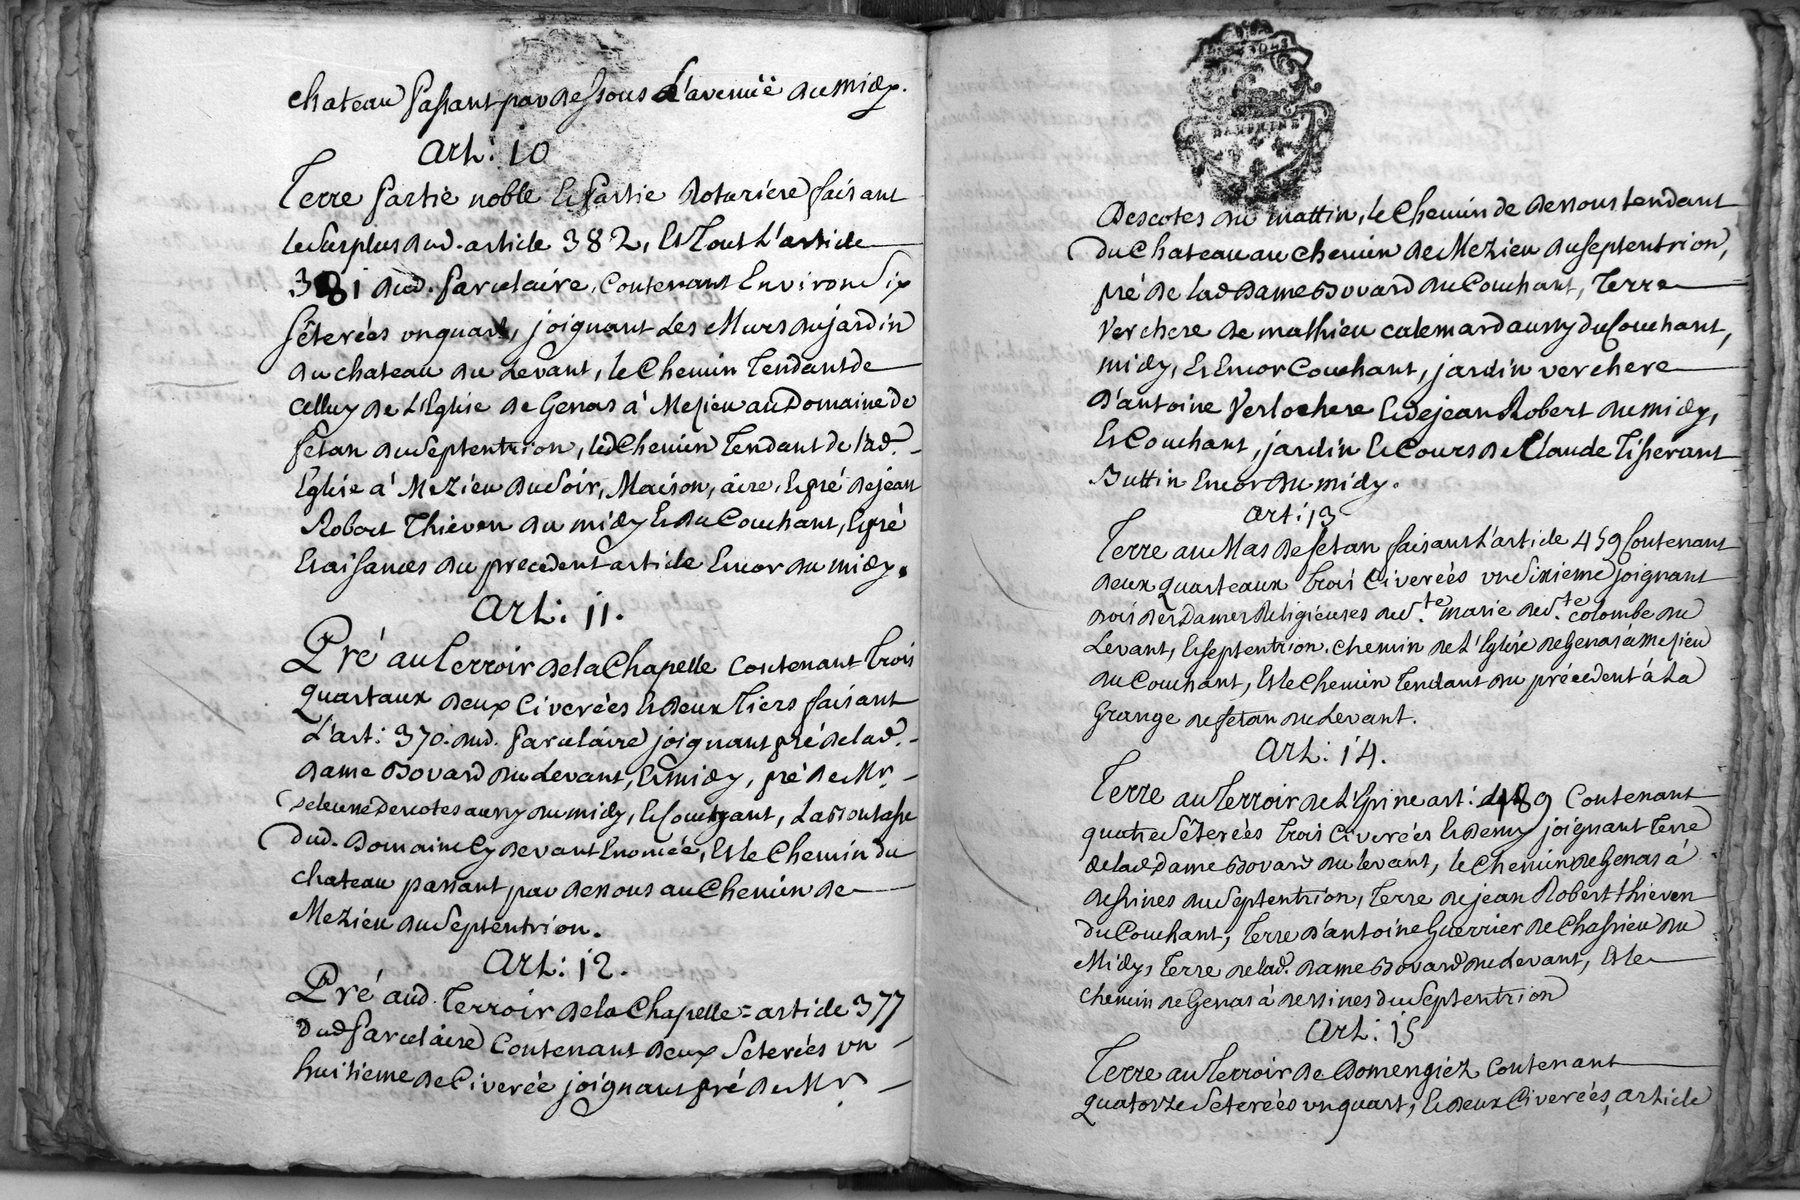 chateau passant par dessous L'avenuë du midy.
Art: 10
Terre partie noble & partie Roturiere faisant
le surplus dud. article 382, Et Tout L'article
381 dud. parcelaire, Contenant Environ Six
sêterées un quart, joignant Les Murs du jardin
du chateau du Levant, le Chemin Tendant de
celluy de L'Eglise de Genas à Mesieu au Domaine de
fetan du Septentrion, led Chemin Tendant de lad.
Eglise à Mezieu du Soir, Maison, aire, & pré de jean
Robert Thieven du midy & du Couchant, & pré
& aisances du precedent article Encor du midy.
Art: 11.
Pré au Terroir de la Chapelle contenant Trois
quartaux deux Civerées & deux Tiers faisant
L'art: 370. dud. parcelaire joignant pré de lad.
dame Bovard du Levant, & midy, pré de Mr.
Descotes aussy du midy, & Couchant, La
dud. Domaine Cy devant Enoncée, Et le Chemin du
chateau passant par dessous au Chemin de
Mezieu du Septentrion.
Art: 12.
Pré aud. Terroir de la Chapelle = article 377
dud parcelaire Contenant deux Seterées un
huitieme de Civerée joignant pré de Mr.
DAUPHINE
Descotes du mattin, le Chemin de dessous tendant
du Chateau au chemin de Mezieu du septentrion,
pré de lad Dame Bovard du Couchant, Terre
Verchere de mathieu calemard aussy du Couchant,
midy, & Encor Couchant, jardin verchere
d'antoine Verlochere & de jean Robert du midy,
& Couchant, jardin & Cours de Claude Tisserant
Buttin Encor du midy.
Art: 13
Terre au Mas de fetan faisant L'article 459 Contenant
deux quarteaux trois Civerées un Sixieme joignant
bois des Dames Religieuses de Ste. marie de Ste. colombe du
Levant, & septentrion. chemin de L'Eglise de Genas à Mesieu
du Couchant, Et le Chemin Tendant du précedent à La
Grange de fetan du Levant.
Art: 14.
Terre au Terroir de L'Epine art: 489 Contenant
quatre Sêterées trois Civerées & demy joignant Terre
de lad Dame Bovard du levant, le Chemin de Genas à
dessines du Septentrion, Terre de jean Robert thieven
du Couchant, Terre d'antoine Guerrier de Chassieu du
Midy, Terre de lad. dame Bovard du Levant, Et le
chemin de Genas à dessines du Septentrion
Art: 15
Terre au Terroir de Domengiéz Contenant
quatorze Seterées un quart, & deux Civerées, article